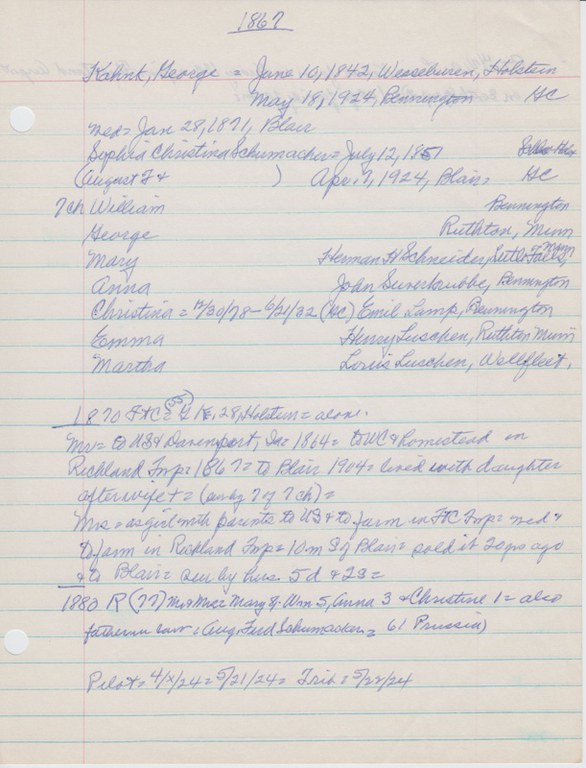 1867
Kahnk, George = June 10, 1842, Wesselburen, Holstein
May 18, 1924, Bennington HC
med = Jan 28, 1871, Blair
Sophia Christina Schumacher = July 12, 1851
(August F & ) Apr. 7, 1924, Blair = HC
7ch William Bennington
George Ruthton, Minn
Mary Herman H Schneider, Falls, Minn
Anna John Suverkrubbe, Bennington
Christina = 12/30/78 - 6/21/32 (HC) Emil Lamp, Bennington
Emma Henry Luschen, Ruthton Minn
Martha Louis Luschen, Wellfleet,
1870 FtC = G K, 28, Holstein = alone.
Mr = to US & Davenport, Ia = 1864 = to WC & homestead in
Richland Twp = 1867 = to Blair 1904 = lived with daughter
after wife + = (sur by 7 of 7 ch) =
Mrs = as girl with parents to US & to farm in FtC Twp = med &
to farm in Richland Twp = 10 m S of Blair = sold it 20 yrs ago
& to Blair = sur by hus. 5 d & 2 s =
1880 R (77) Mr & Mrs = Mary 8. Wm 5, Anna 3 & Christine 1 = also
father in law = (Aug. Ferd Schumacher = 61 Prussia)
Pilot = 4/ /24 = 5/21/24 = Trib = 5/22/24